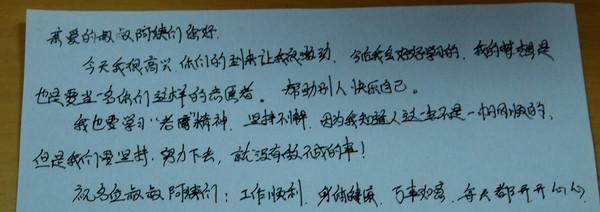 亲爱的叔叔阿姨们你好:
今天我很高兴.你们的到来让我很激动,今后我会好好学习的,我的梦想是
也是要当一名你们这样的志愿者。帮助别人快乐自己。
我也要学习"老鹰"精神,坚持不懈,因为我知道人这一生不是一帆风顺的,
但是我们要坚持.努力下去,就没有做不成的事!
祝各位叔叔阿姨们:工作顺利,身体健康,万事如意,每天都开开心心